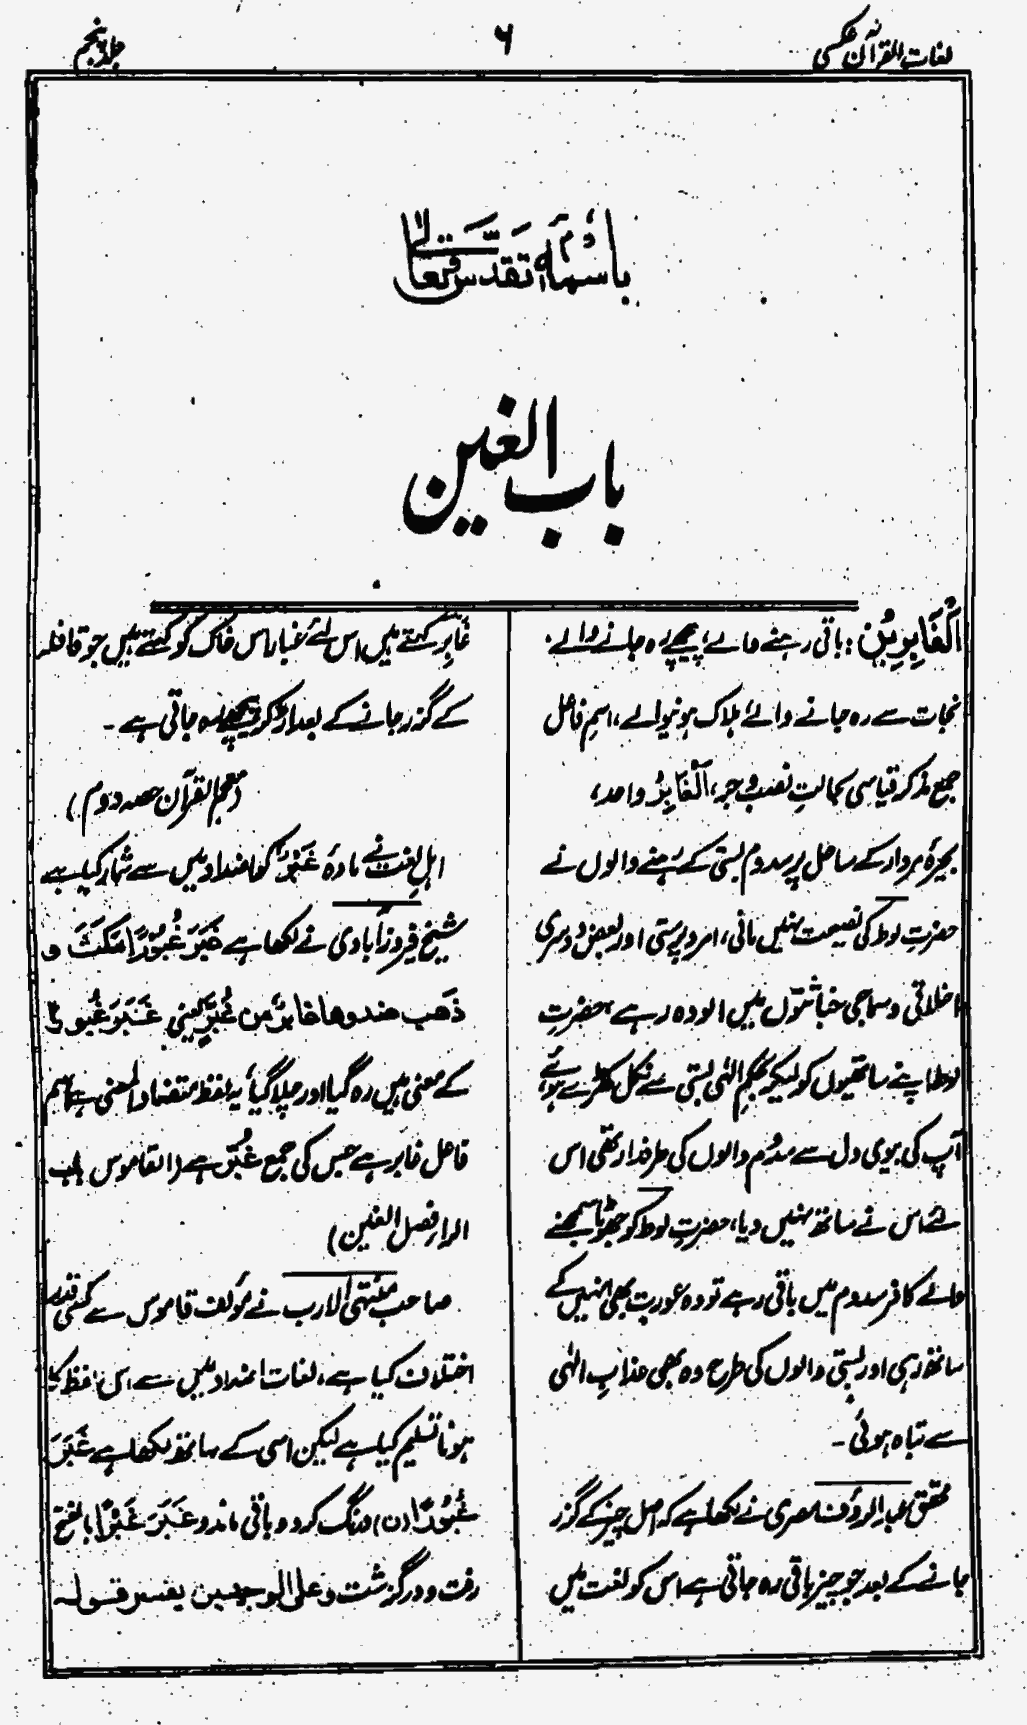 لغات القرآن عکسی
۶
جلد پنجم
باسمہٖ تقدس و تعالیٰ
باب الغین
اَلْغَابِرِیْنَ: باقی رہنے والے، پیچھے رہ جانے والے.
نجات سے رہ جانے والے، ہلاک ہونیوالے، اسمِ فاعل
جمع مذکر قیاسی بحالتِ نصب و جر، اَلْغَابِرُ واحد،
بحیرۂ مردار کے ساحل پر سدوم بستی کے رہنے والوں نے
حضرت لوط کی نصیحت نہیں مانی، امرد پرستی اور بعض دوسری
اخلاقی و سماجی خباثتوں میں آلودہ رہے، حضرتِ
لوط اپنے ساتھیوں کو لیکر بحکمِ الٰہی بستی سے نکل کھڑے ہوئے،
آپ کی بیوی دل سے سدوم والوں کی طرفدار تھی اس
لئے اس نے ساتھ نہیں دیا، حضرتِ لوط کو جھوٹا سمجھنے
والے کافر سدوم میں باقی رہے تو وہ عورت بھی انہیں کے
ساتھ رہی اور بستی والوں کی طرح وہ بھی عذابِ الٰہی
سے تباہ ہوئی۔
محقق عبدالرؤف مصری نے لکھا ہے کہ اصل چیز کے گزر
جانے کے بعد جو چیز باقی رہ جاتی ہے اس کو لغت میں
غَابِر کہتے ہیں اس لئے غبار اس خاک کو کہتے ہیں جو قافلہ
کے گزر جانے کے بعد اڑ کر پیچھے رہ جاتی ہے۔
(معجم القرآن حصہ دوم)
اہلِ لغت نے مادہ غَبْر کو اضداد میں سے شمار کیا ہے
شیخ فیروزآبادی نے لکھا ہے غَبَرَ غُبُوْرًا مَکَثَ و
ذَهَب ضد وهو غابرٌ من غُبَّرٍ یعنی غَبَرَ غُبورًا
کے معنی ہیں رہ گیا اور چلا گیا، یہ لفظ متضاد المعنی ہے اسم
فاعل غابر ہے جس کی جمع غُبَّر ہے (القاموس باب
الراء فصل الغین)
صاحب منتہی الارب نے مؤلف قاموس سے کسی قدر
اختلاف کیا ہے، لغات اضداد میں سے اس لفظ کا
ہونا تسلیم کیا ہے لیکن اسی کے ساتھ لکھا ہے غَبَرَ
غُبُوْرًا (ن) درنگ کرد و باقی ماند و غَبَرَ غَبْرًا بالفتح
رفت و درگزشت و علی الوجهین یفسر قوله